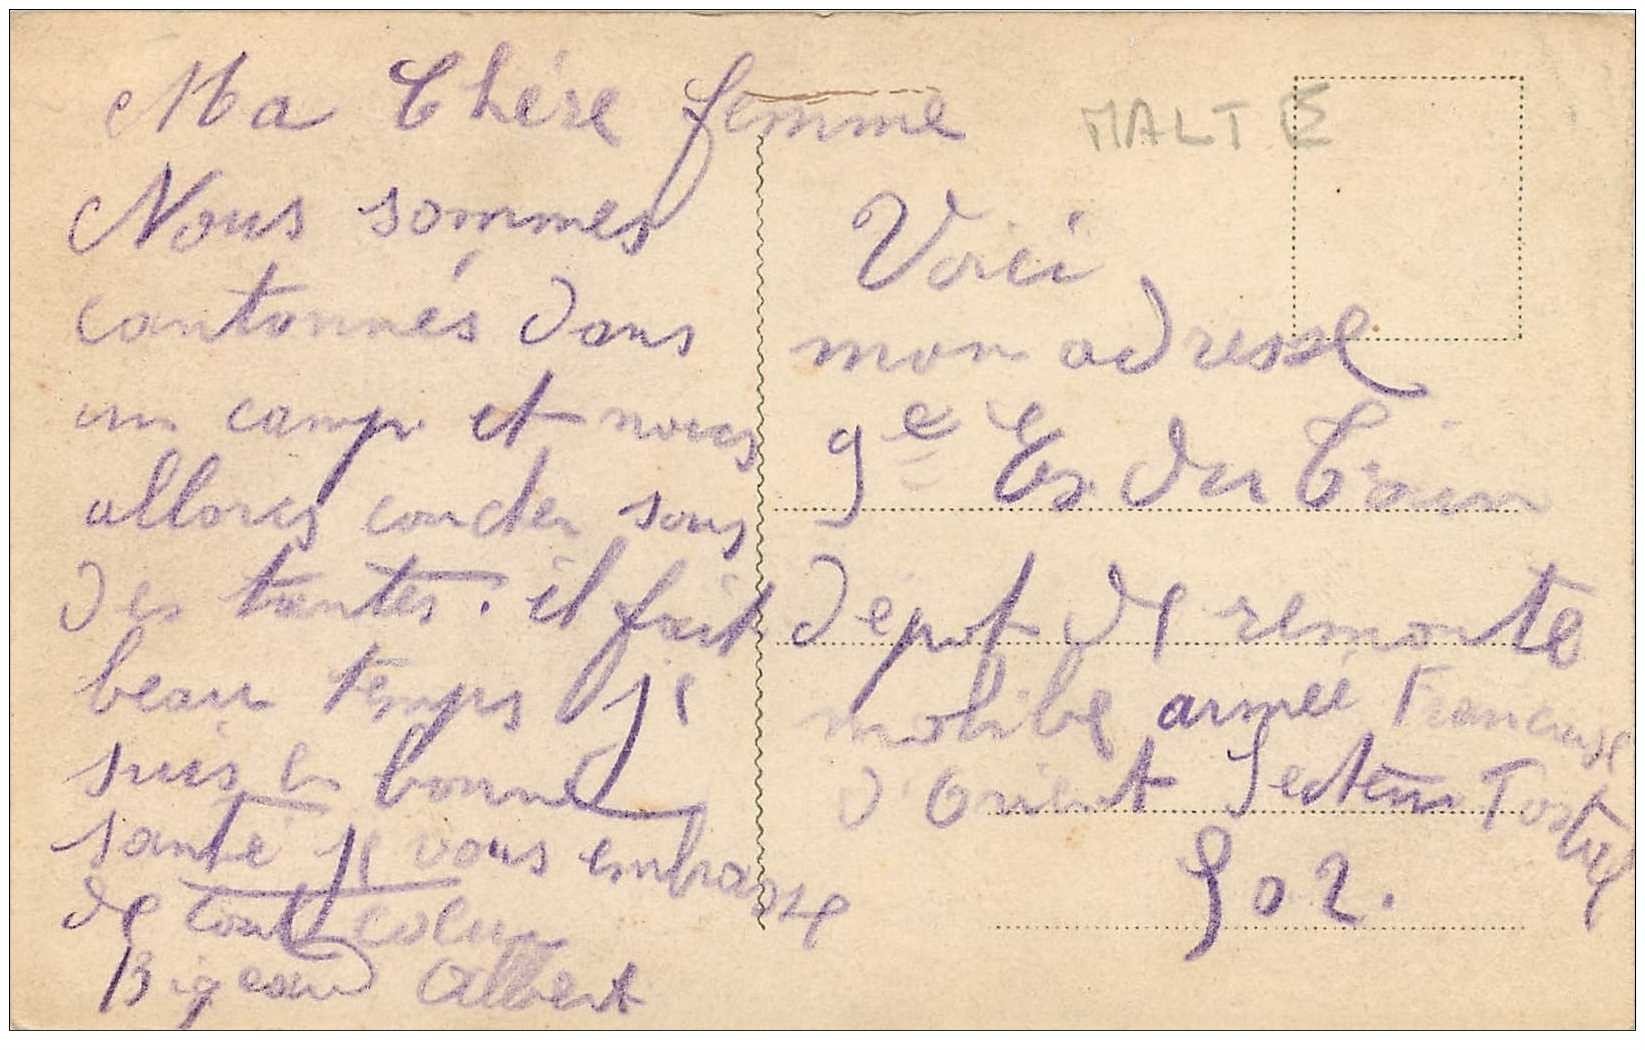 Ma Chére femme
Nous sommes
cantonnés dans
un camp et nous
allons coucher sous
des tentes. il fait
beau temps je
suis en bonne
santé je vous embrasse
de tout coeur
Bigeard Albert
MALTE
Voici
mon adresse
9e Es. du Train
dépot de remonte
mobile armée Francaise
d'Orient Secteur Postal
502.